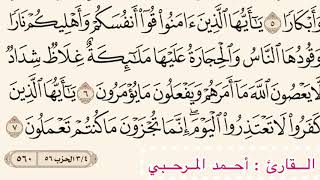 وَأَبْكَارًا ۝٥ يَٰٓأَيُّهَا ٱلَّذِينَ ءَامَنُوا۟ قُوٓا۟ أَنفُسَكُمْ وَأَهْلِيكُمْ نَارًا
وَقُودُهَا ٱلنَّاسُ وَٱلْحِجَارَةُ عَلَيْهَا مَلَٰٓئِكَةٌ غِلَاظٌ شِدَادٌ
لَّا يَعْصُونَ ٱللَّهَ مَآ أَمَرَهُمْ وَيَفْعَلُونَ مَا يُؤْمَرُونَ ۝٦ يَٰٓأَيُّهَا ٱلَّذِينَ
كَفَرُوا۟ لَا تَعْتَذِرُوا۟ ٱلْيَوْمَ ۖ إِنَّمَا تُجْزَوْنَ مَا كُنتُمْ تَعْمَلُونَ ۝٧
٥٦٠ ٣/٤ الحزب ٥٦
القارئ : أحمد المرحبي